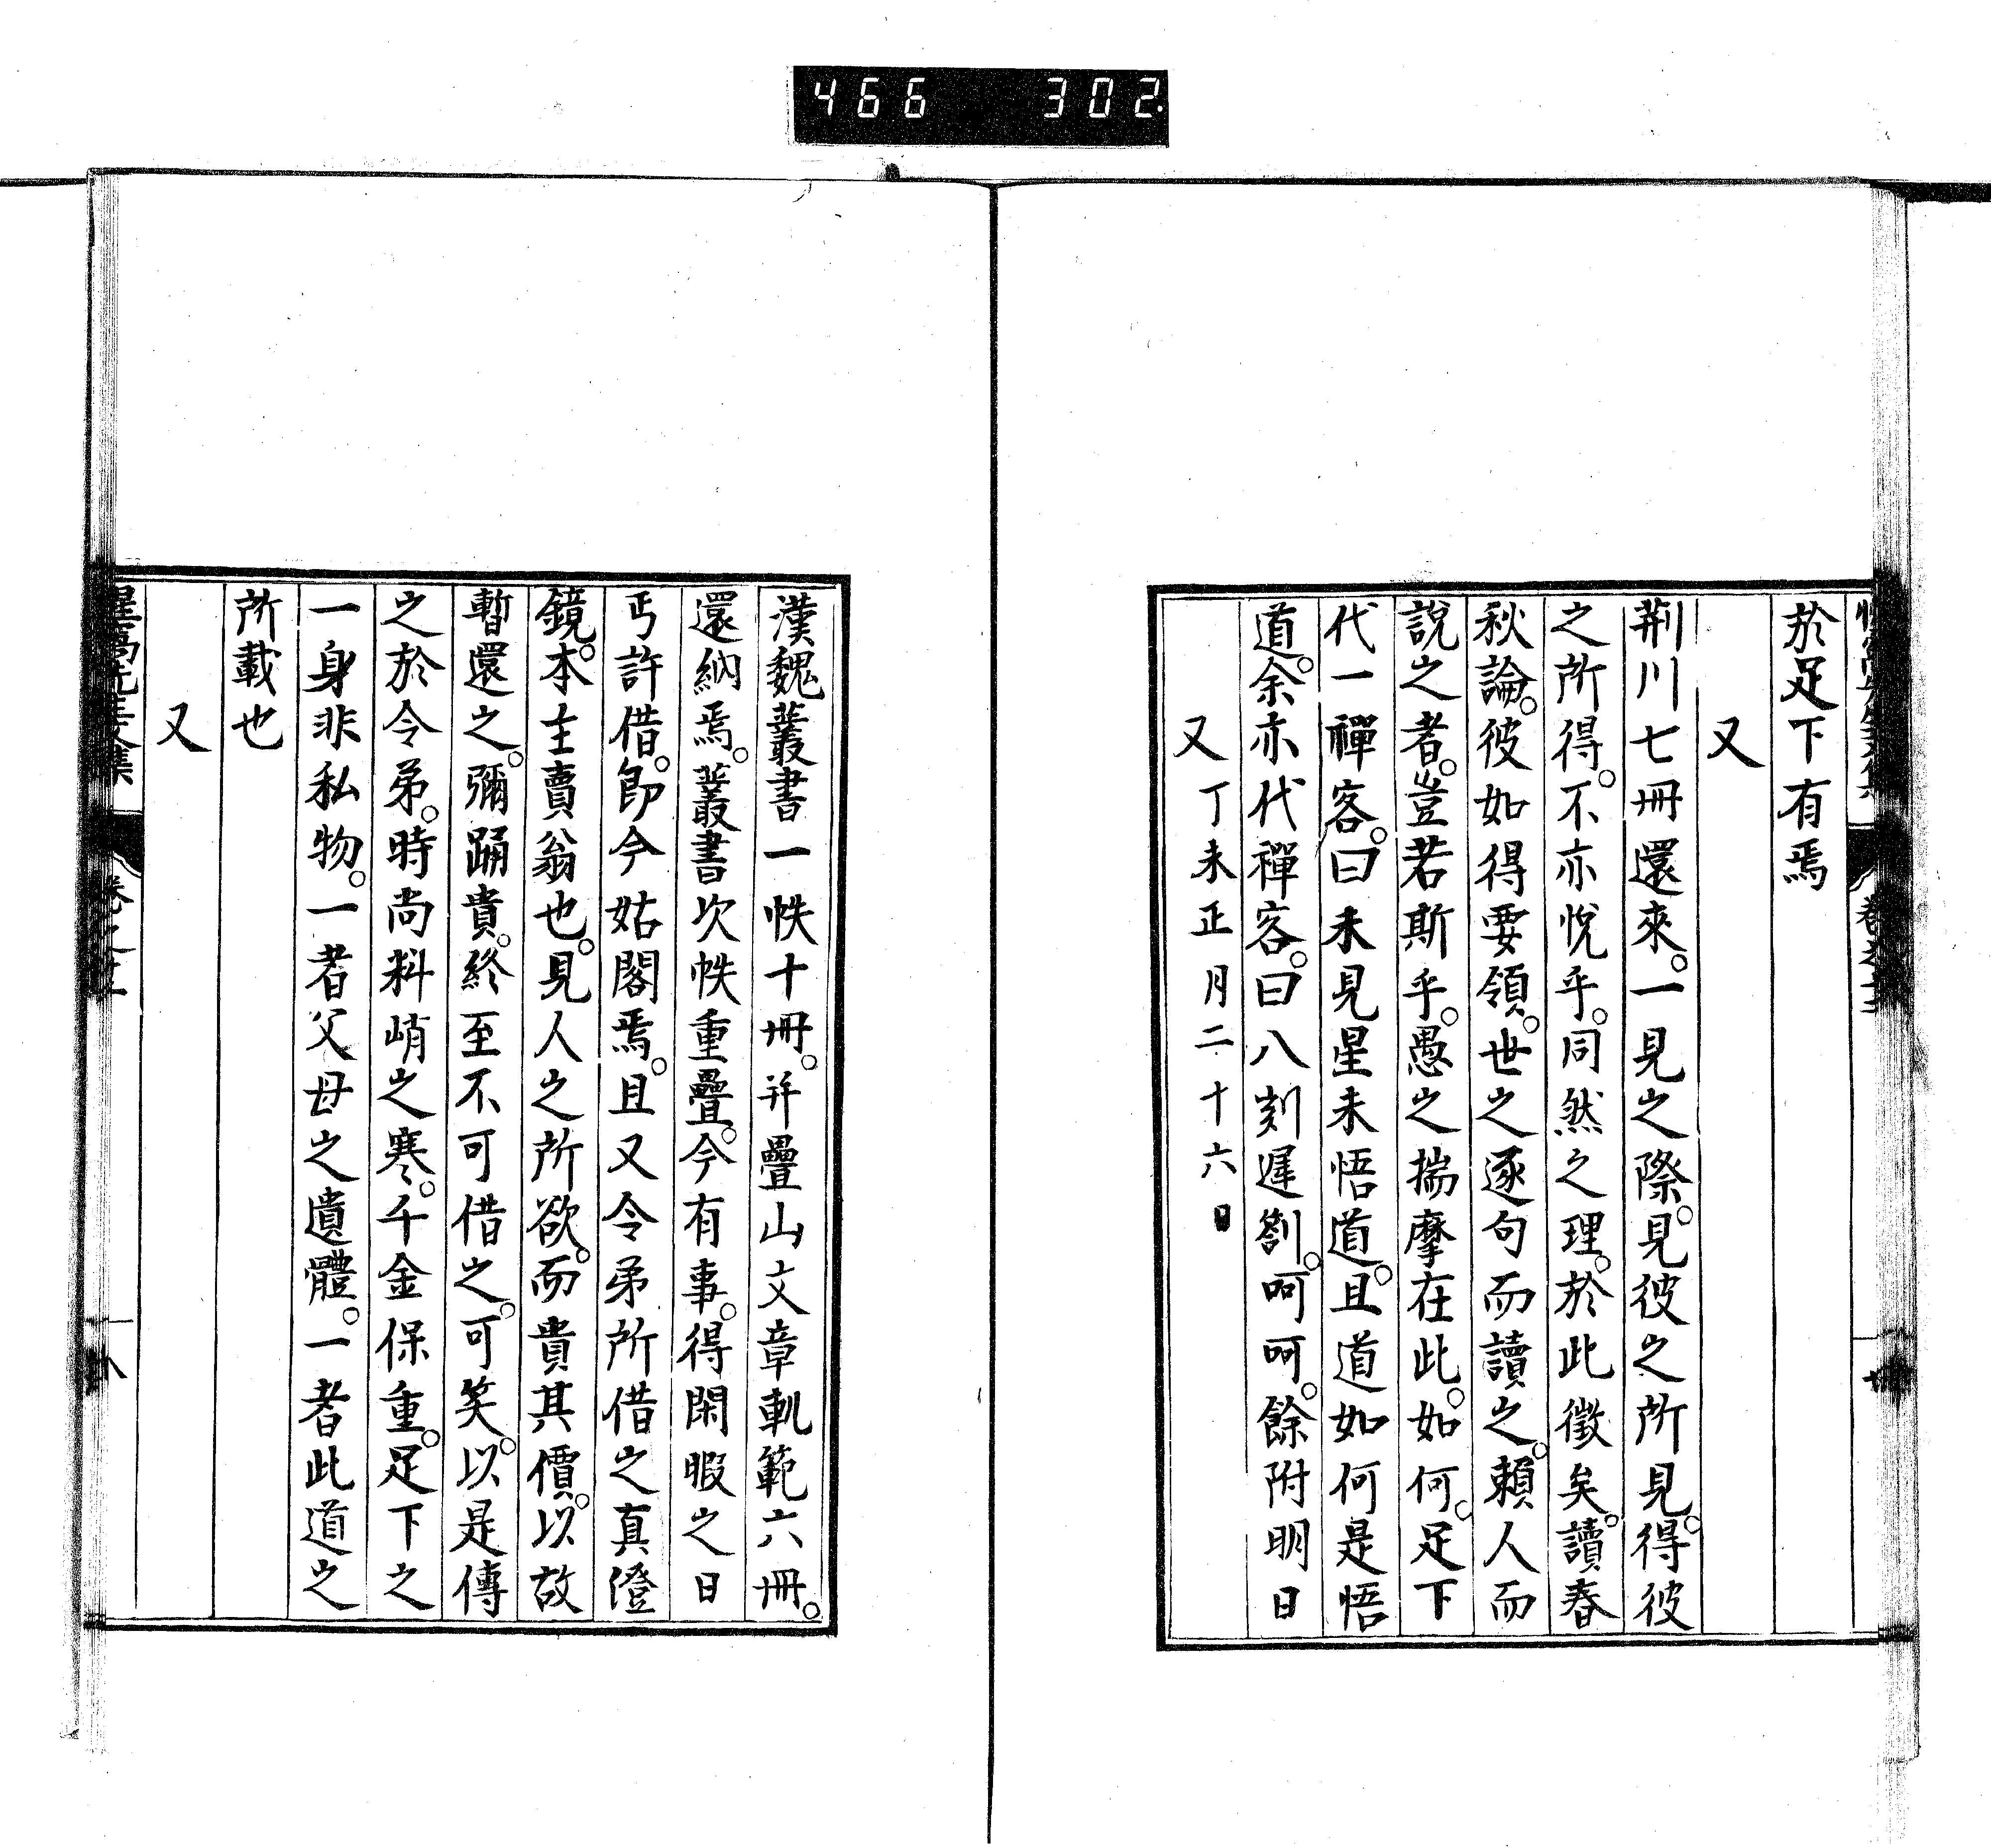 466 302
於足下有焉
又
荆川七冊還來。一見之際。見彼之所見。得彼
之所得。不亦悅乎。同然之理。於此徵矣。讀春
秋論。彼如得要領。世之逐句而讀之。賴人而
說之者。豈若斯乎。愚之揣摩在此。如何。足下
代一禪客。曰未見星未悟道。且道如何是悟
道。余亦代禪客。曰八刻遲劄。呵呵。餘附明日
又丁未正月二十六日
漢魏叢書一帙十冊。并疊山文章軌範六冊。
還納焉。叢書次帙重疊。今有事。得閑暇之日
丐許借。卽今姑閣焉。且又令弟所借之真澄
鏡。本主賣翁也。見人之所欲。而貴其價。以故
暫還之。彌踊貴。終至不可借之。可笑。以是傳
之於令弟。時尚料峭之寒。千金保重。足下之
一身非私物。一者父母之遺體。一者此道之
所載也
又
惺窩先生文集 卷之十一 十八